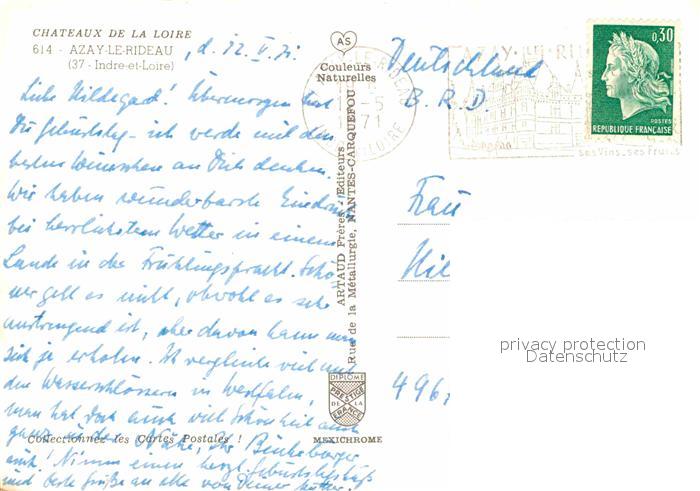 CHATEAUX DE LA LOIRE
614 - AZAY-LE-RIDEAU
(37 - Indre-et-Loire)
, d. 12. V. 71.
Liebe Hildegard! Übermorgen hast
Du Geburtstag - ich werde mit den
besten Wünschen an Dich denken.
Wir haben wunderbarste Eindrücke
bei herrlichstem Wetter in einem
Lande in der Frühlingspracht. Schö
ner geht es nicht, obwohl es sehr
anstrengend ist, aber davon kann man
sich ja erholen. Ich vergleiche viel mit
den Wasserschlössern in Westfalen,
man hat dort auch viel Schönheit auch
ganz Nähe, Ihr
auch! Nimm einen herzl. Geburtstagskuß
und beste Grüße an alle von Deiner Mutter.
Collectionnez les Cartes Postales !
AS
Couleurs
Naturelles
ARTAUD Frères - Editeurs
Rue de la Métallurgie, NANTES-CARQUEFOU
DIPLOME
PRESTIGE
DE LA
FRANCE
MEXICHROME
AZAY LE RIDEAU
-5
1971
INDRE ET LOIRE
AZAY-LE-RI
ses Vins_ses Fruits
0,30
POSTES
REPUBLIQUE FRANÇAISE
Deutschland
B. R. D.
Frau
Hil
496
privacy protection
Datenschutz